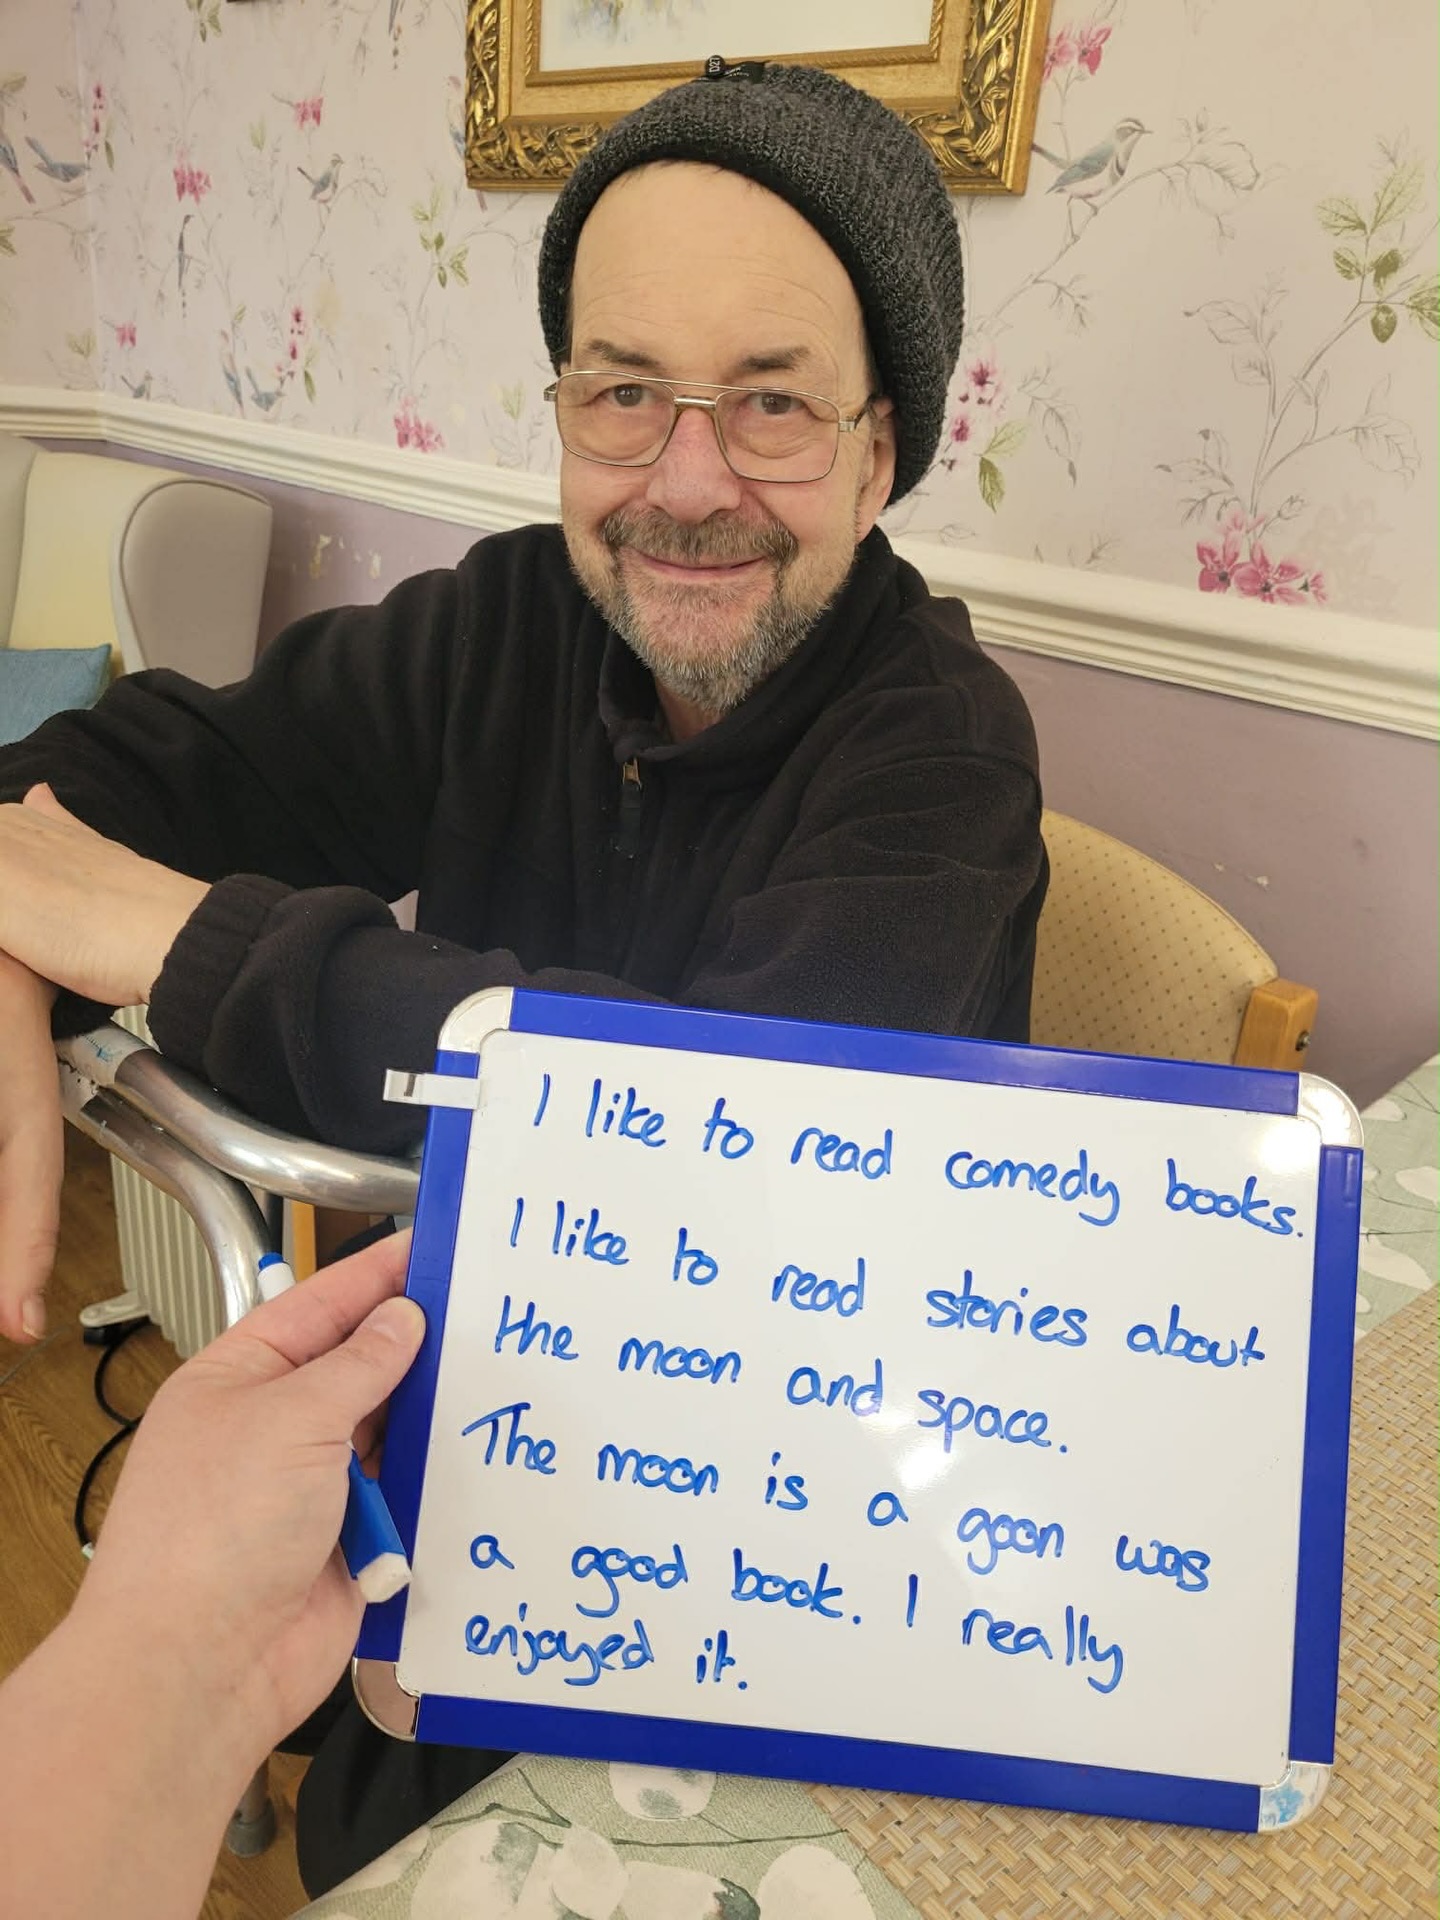 I like to read comedy books.
I like to read stories about
the moon and space.
The moon is a goon was
a good book. I really
enjoyed it.